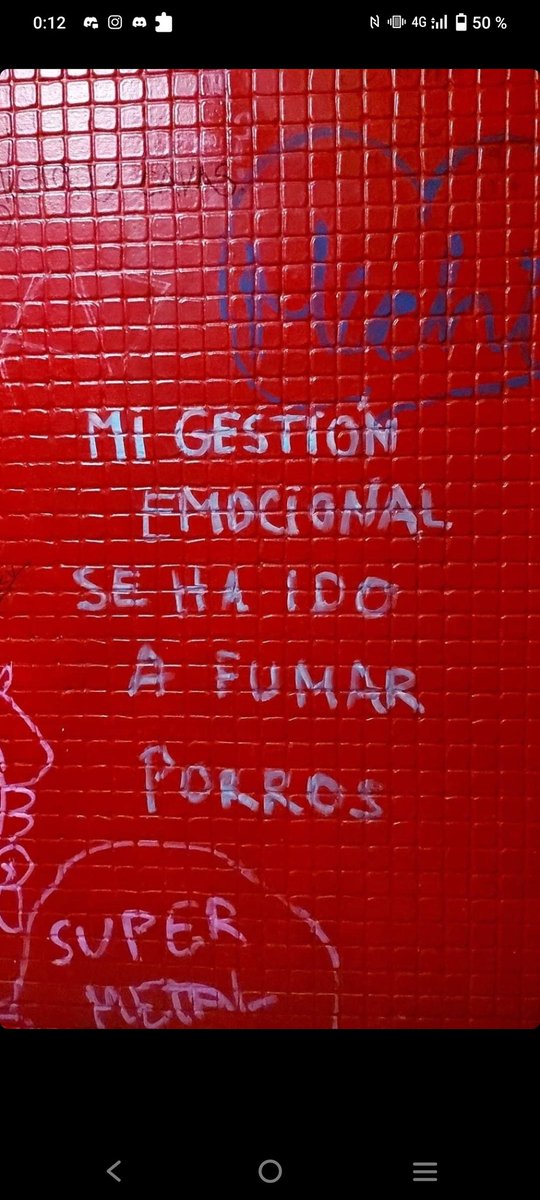 0:12
4G
50 %
MI GESTIÓN
EMOCIONAL
SE HA IDO
A FUMAR
PORROS
SUPER